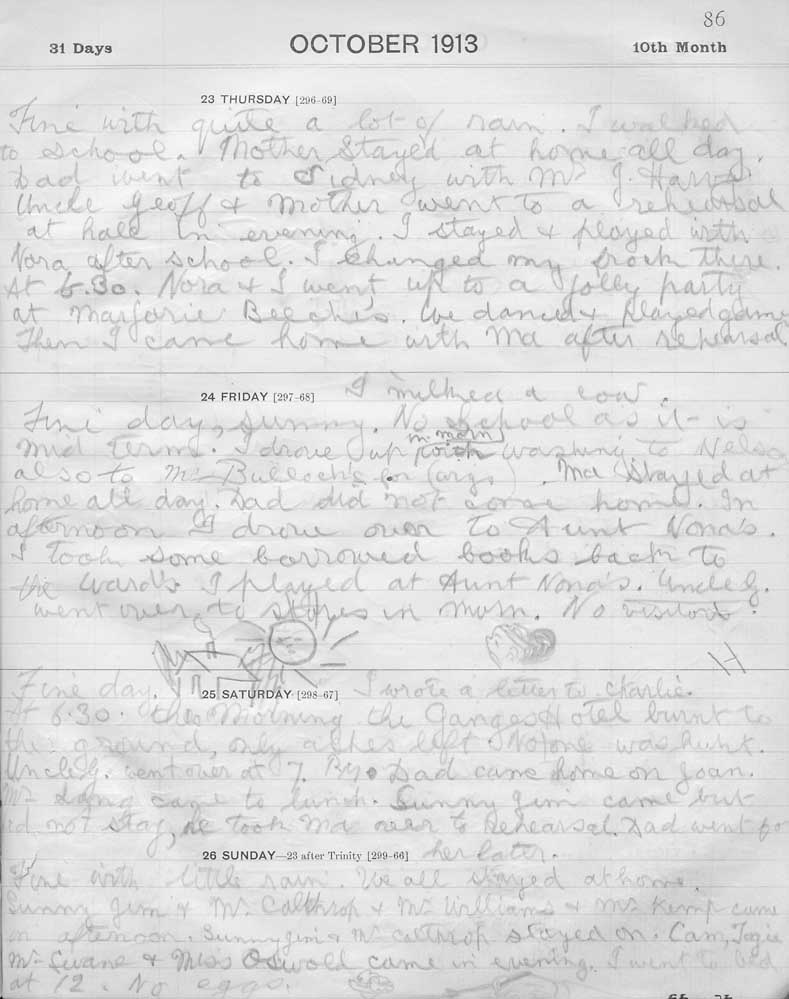 86
31 Days OCTOBER 1913 10th Month
23 THURSDAY [296-69]
Fine with quite a lot of rain. I walked
to school. Mother stayed at home all day.
Dad went to Sidney with Mr J. Harvey
Uncle Geoff & Mother went to a rehearsal
at hall in evening. I stayed & played with
Nora after school. I changed my frock there.
At 6.30. Nora & I went up to a jolly party
at Marjorie Beech's. We danced & played game
Then I came home with Ma after rehearsal
24 FRIDAY [297-68] I milked a cow.
Fine day, sunny. No school as it is
mid term. I drove up with in morn washing to Nelso
also to Mr Bullock's for . Ma stayed at
home all day. Dad did not come home. In
afternoon I drove over to Aunt Nona's.
I took some borrowed books back to
the Ward's I played at Aunt Nona's. Uncle G.
went over to stores in morn. No visitors.
H
Fine day. 25 SATURDAY [298-67] I wrote a letter to Charlie.
At 6.30. this Morning the Ganges Hotel burnt to
the ground, only ashes left. No one was hurt.
Uncle G. went over at 7. Dad came home on Joan.
Mr Lang came to lunch. Sunny Jim came but
id not stay, he took Ma over to Rehearsal. Dad went fo
26 SUNDAY—23 after Trinity [299-66] her later.
Fine with little rain. We all stayed at home.
Sunny Jim & Mr. Calthrop & Mr Williams & Mr Kemp came
in afternoon. Sunny Jim & Mr Calthrop stayed on. Cam,
Mr Swane & Miss Oswold came in evening. I went to bed
at 12. No eggs.